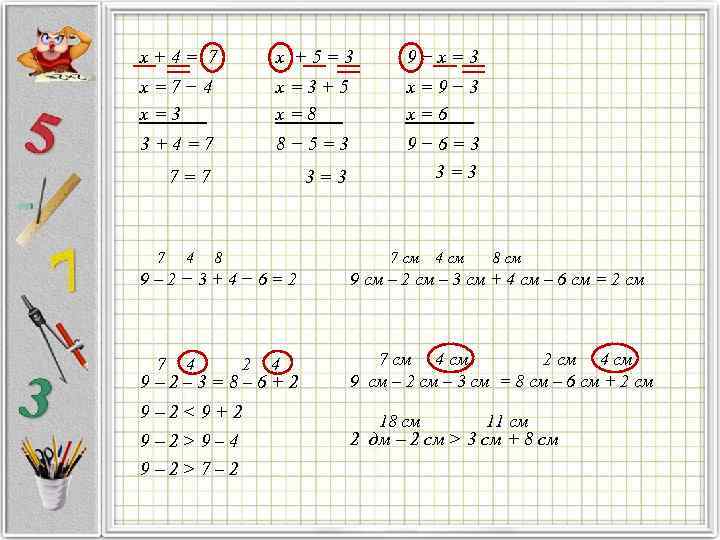 x + 4 = 7
x = 7 − 4
x = 3
3 + 4 = 7
7 = 7
x + 5 = 3
x = 3 + 5
x = 8
8 − 5 = 3
3 = 3
9 − x = 3
x = 9 − 3
x = 6
9 − 6 = 3
3 = 3
7 4 8
9 – 2 − 3 + 4 − 6 = 2
7 см 4 см 8 см
9 см – 2 см – 3 см + 4 см – 6 см = 2 см
7 4 2 4
9 – 2 – 3 = 8 – 6 + 2
9 – 2 < 9 + 2
9 – 2 > 9 – 4
9 – 2 > 7 – 2
7 см 4 см 2 см 4 см
9 см – 2 см – 3 см = 8 см – 6 см + 2 см
18 см 11 см
2 дм – 2 см > 3 см + 8 см
5
7
3